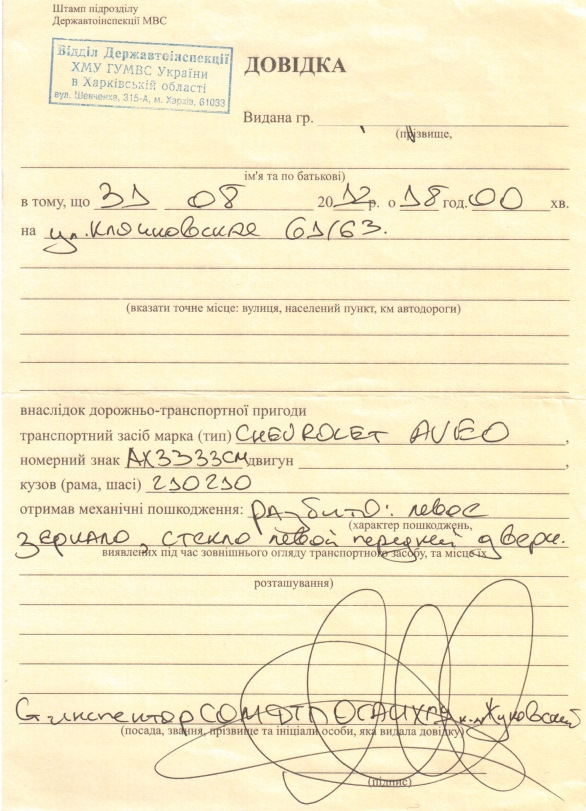 Штамп підрозділу
Державтоінспекції МВС
Відділ Державтоінспекції
ХМУ ГУМВС України
в Харківській області
вул. Шевченка, 315-А, м. Харків, 61033
ДОВІДКА
Видана гр.
(прізвище,
ім'я та по батькові)
в тому, що 31 08 2012р. о 18 год. 00 хв.
на ул. Клочковская 61/63.
(вказати точне місце: вулиця, населений пункт, км автодороги)
внаслідок дорожньо-транспортної пригоди
транспортний засіб марка (тип) CHEVROLET AVEO,
номерний знак АХ3333СМ двигун ,
кузов (рама, шасі) 230230
отримав механічні пошкодження: разбито: левое
(характер пошкоджень,
зеркало, стекло левой передней двери.
виявлених під час зовнішнього огляду транспортного засобу, та місце їх
розташування)
Ст. инспектор Жуковский
(посада, звання, прізвище та ініціали особи, яка видала довідку)
(підпис)